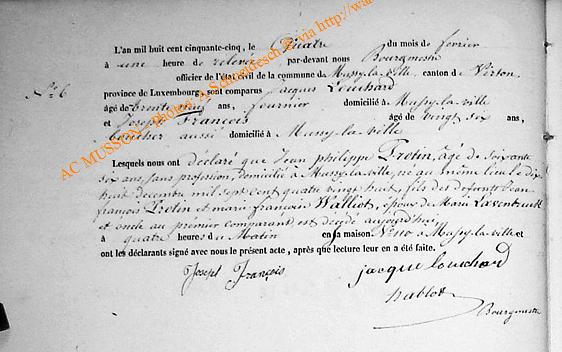 L'an mil huit cent cinquante-cinq, le Quatre du mois de fevrier
à une heure de relevé par-devant nous Bourgmestre
officier de l'état civil de la commune de Mussy-la-ville, canton de Virton
N° 6
province de Luxembourg, sont comparus Jacques Louchard
âgé de trente ans, fournier domicilié à Mussy-la-ville
et Joseph François âgé de vingt six ans,
boucher aussi domicilié à Mussy-la-ville
Lesquels nous ont déclaré que Jean philippe Trotin, âgé de soixante
six ans, sans profession, domicilié à Mussy-la-ville, né au même lieu le dix
huit decembre mil sept cent quatre vingt huit, fils des defunts Jean
françois Trotin et marie françoise Walliot, époux de Marie
et oncle au premier comparant est décédé aujourd'hui
à quatre heures du Matin en sa maison N° 110 à Mussy-la-ville et
ont les déclarants signé avec nous le présent acte, après que lecture leur en a été faite.
Joseph François
jacque louchard
Bourgmestre
AC MUSSON - Photos A. Schmidresch via http://wa